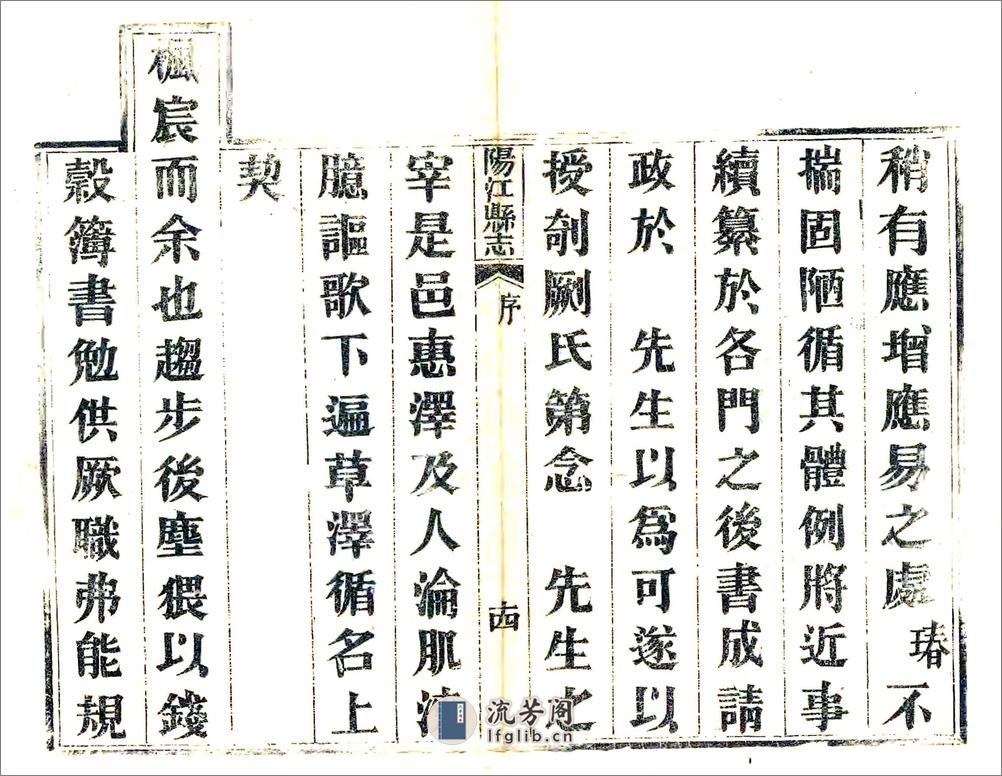 稍有應增應易之處瑃不
揣固陋循其體例將近事
續纂於各門之後書成請
政於　先生以為可遂以
授剞劂氏第念　先生之
陽江縣志
序
十四
宰是邑惠澤及人淪肌浹
臆謳歌下遍草澤循名上
契
楓宸而余也趨步後塵猥以錢
穀簿書勉供厥職弗能規
流芳阁
lfglib.cn